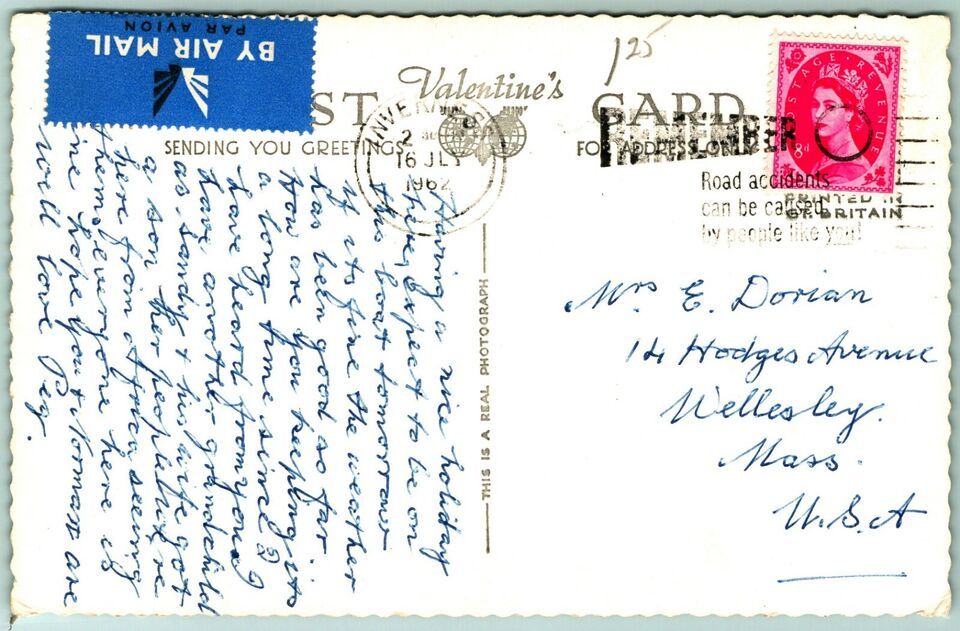 BY AIR MAIL
PAR AVION
125
Valentine's
POST CARD
SENDING YOU GREETINGS
FOR ADDRESS ONLY
16 JLY
1962
REMEMBER
Road accidents
can be caused
by people like you!
POSTAGE REVENUE
8d
PRINTED IN
GT. BRITAIN
Having a nice holiday
here, expect to be on
this boat tomorrow
if its fine the weather
has been good so far.
How are you keeping its
a long time since I
have heard from you, I
have another grandchild
as Sandy & his wife got
a son. Her people are
here from Africa seeing
them, everyone here is
fine hope you & Norman are
well love Peg.
THIS IS A REAL PHOTOGRAPH
Mrs E. Dorian
14 Hodges Avenue
Wellesley.
Mass.
U.S.A